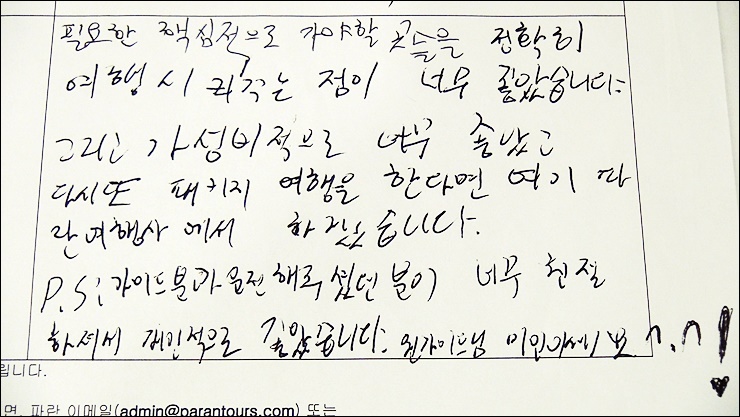 필요한 핵심적으로 가야할 곳들을 정확히
여행시 찍는 점이 너무 좋았습니다.
그리고 가성비적으로 너무 좋았고
다시또 패키지 여행을 한다면 여기 파
란여행사에서 하겠습니다.
P.S: 가이드분과 운전해주셨던 분이 너무 친절
하셔서 개인적으로 좋았습니다. 가이드님 미인이세요 ^.^!♥
립니다.
면, 파란 이메일(admin@parantours.com) 또는